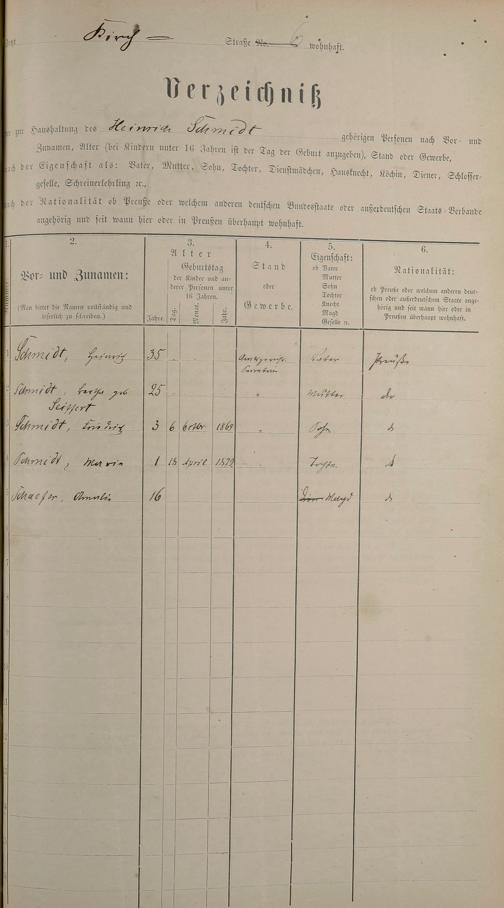 Kirch — Straße No. 6 wohnhaft.
Verzeichniß
zur Haushaltung des Heinrich Schmidt gehörigen Personen nach Vor- und
Zunamen, Alter (bei Kindern unter 16 Jahren ist der Tag der Geburt anzugeben), Stand oder Gewerbe,
nach der Eigenschaft als: Vater, Mutter, Sohn, Tochter, Dienstmädchen, Hausknecht, Köchin, Diener, Schlosser-
geselle, Schreinerlehrling ꝛc.,
nach der Nationalität ob Preuße oder welchem anderen deutschen Bundesstaate oder außerdeutschen Staats-Verbande
angehörig und seit wann hier oder in Preußen überhaupt wohnhaft.
2.
Vor- und Zunamen:
(Man bittet die Namen vollständig und leserlich zu schreiben.)
3.
Alter
Geburtstag
der Kinder und an-
derer Personen unter
16 Jahren.
Jahre. Tag. Monat. Jahr.
4.
Stand
oder
Gewerbe.
5.
Eigenschaft:
ob Vater
Mutter
Sohn
Tochter
Knecht
Magd
Geselle ꝛc.
6.
Nationalität:
ob Preuße oder welchem anderen deut-
schen oder außerdeutschen Staate ange-
hörig und seit wann hier oder in
Preußen überhaupt wohnhaft.
Schmidt, Heinrich 35 Vater Preuße
Schmidt, geb 25 " Mutter do
Seiffert
Schmidt, Friedrich 3 6 " Sohn do
Schmidt, Maria 1 18 April Tochter do
Schaefer, Amalie 16 Magd do